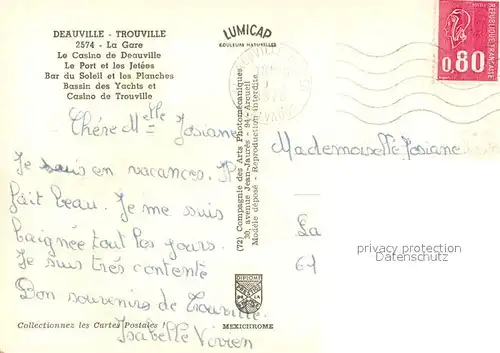 DEAUVILLE - TROUVILLE
2574 - La Gare
Le Casino de Deauville
Le Port et les Jetées
Bar du Soleil et les Planches
Bassin des Yachts et
Casino de Trouville
LUMICAP
COULEURS NATURELLES
REPUBLIQUE FRANCAISE
0,80
Chère Melle Josiane
Je suis en vacances. Il
fait beau. Je me suis
baignée tout les jours.
Je suis très contente
Bon souvenirs de Trouville.
Isabelle
(72) Compagnie des Arts Photomécaniques
30, avenue Jean-Jaurès - 94 - Arcueil
Modèle déposé - Reproduction interdite
Mademoiselle Josiane
La
61
privacy protection
Datenschutz
DIPLOME
MEXICHROME
Collectionnez les Cartes Postales !